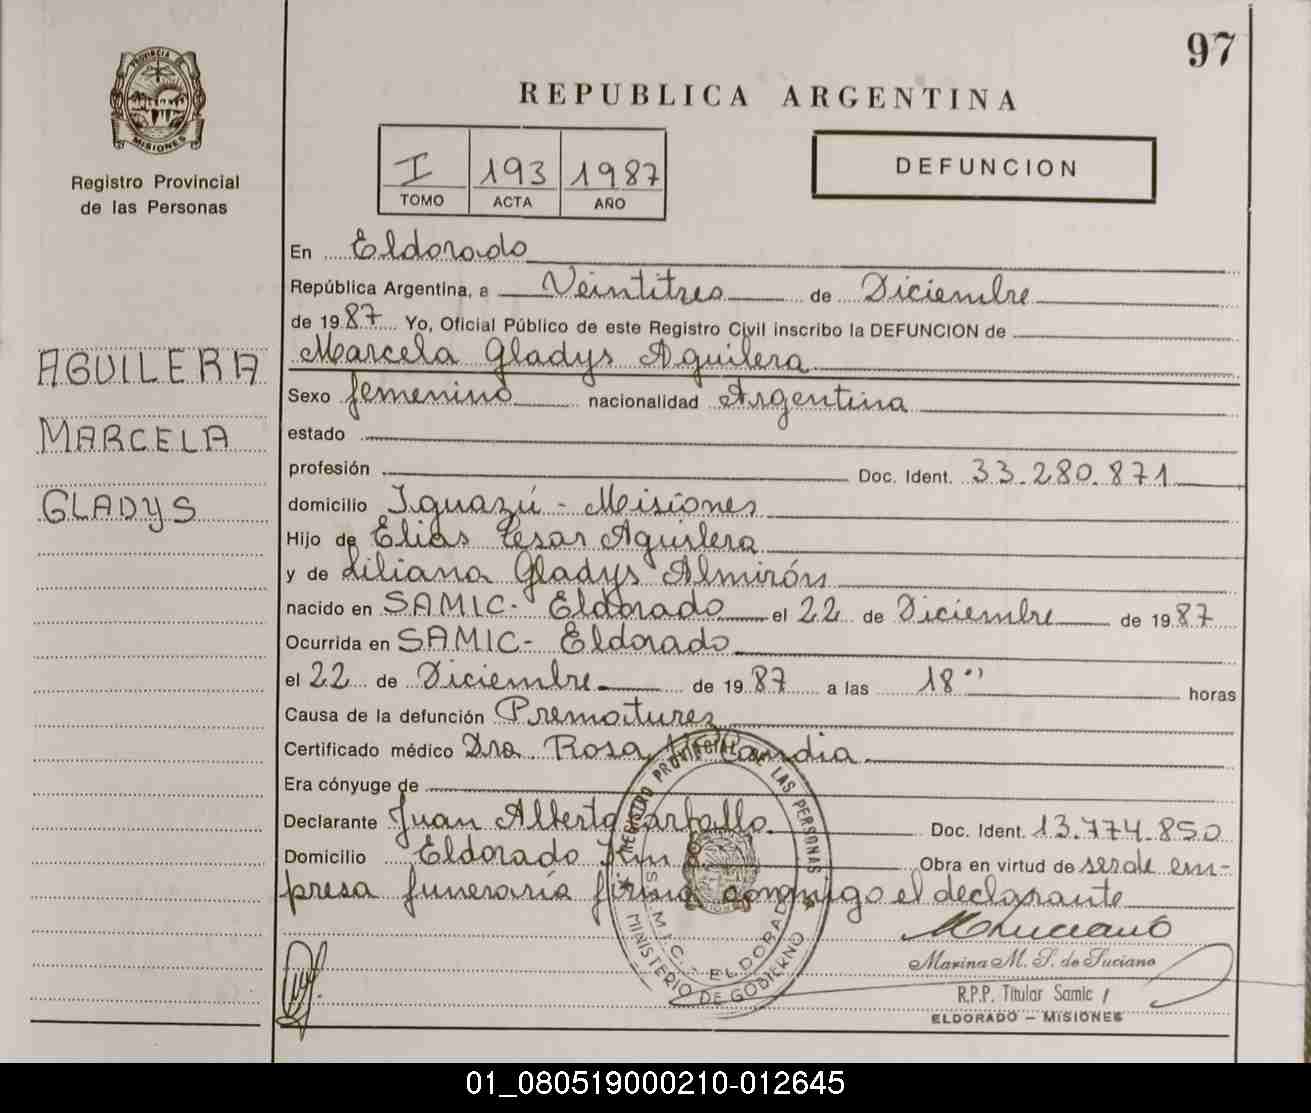 97
PROVINCIA DE
MISIONES
Registro Provincial
de las Personas
REPUBLICA ARGENTINA
I 193 1987
TOMO ACTA AÑO
DEFUNCION
En Eldorado
República Argentina, a Veintitres de Diciembre
de 1987 Yo, Oficial Público de este Registro Civil inscribo la DEFUNCION de
Marcela Gladys Aguilera
AGUILERA
MARCELA
GLADYS
Sexo femenino nacionalidad Argentina
estado
profesión Doc. Ident. 33.280.871
domicilio Iguazú - Misiones
Hijo de Elias Cesar Aguilera
y de Liliana Gladys Almirón
nacido en SAMIC- Eldorado el 22 de Diciembre de 1987
Ocurrida en SAMIC- Eldorado
el 22 de Diciembre de 1987 a las 18 horas
Causa de la defunción Prematurez
Certificado médico Dra. Rosa Candia
Era cónyuge de
Declarante Juan Alberto Carballo Doc. Ident. 13.774.850
Domicilio Eldorado Km Obra en virtud de ser de em-
presa funeraría firma conmigo el declarante
REGISTRO PROVINCIAL DE LAS PERSONAS
MINISTERIO DE GOBIERNO
ELDORADO
Marina M. S. de Luciano
R.P.P. Titular Samic
ELDORADO - MISIONES
01_080519000210-012645